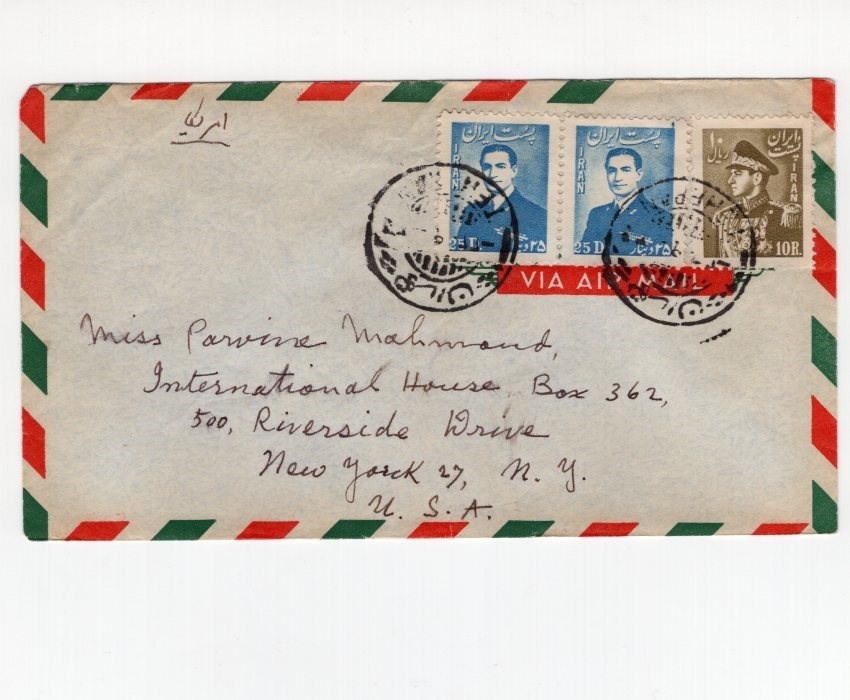 امریکا
پست ایران
IRAN
25 D.
۲۵ دینار
پست ایران
IRAN
25 D.
۲۵ دینار
پست ایران
۱۰ ریال
IRAN
10R.
TEHRAN
VIA AIR MAIL
Miss Parvine Mahmoud,
International House, Box 362,
500, Riverside Drive
New York 27, N. Y.
U. S. A.